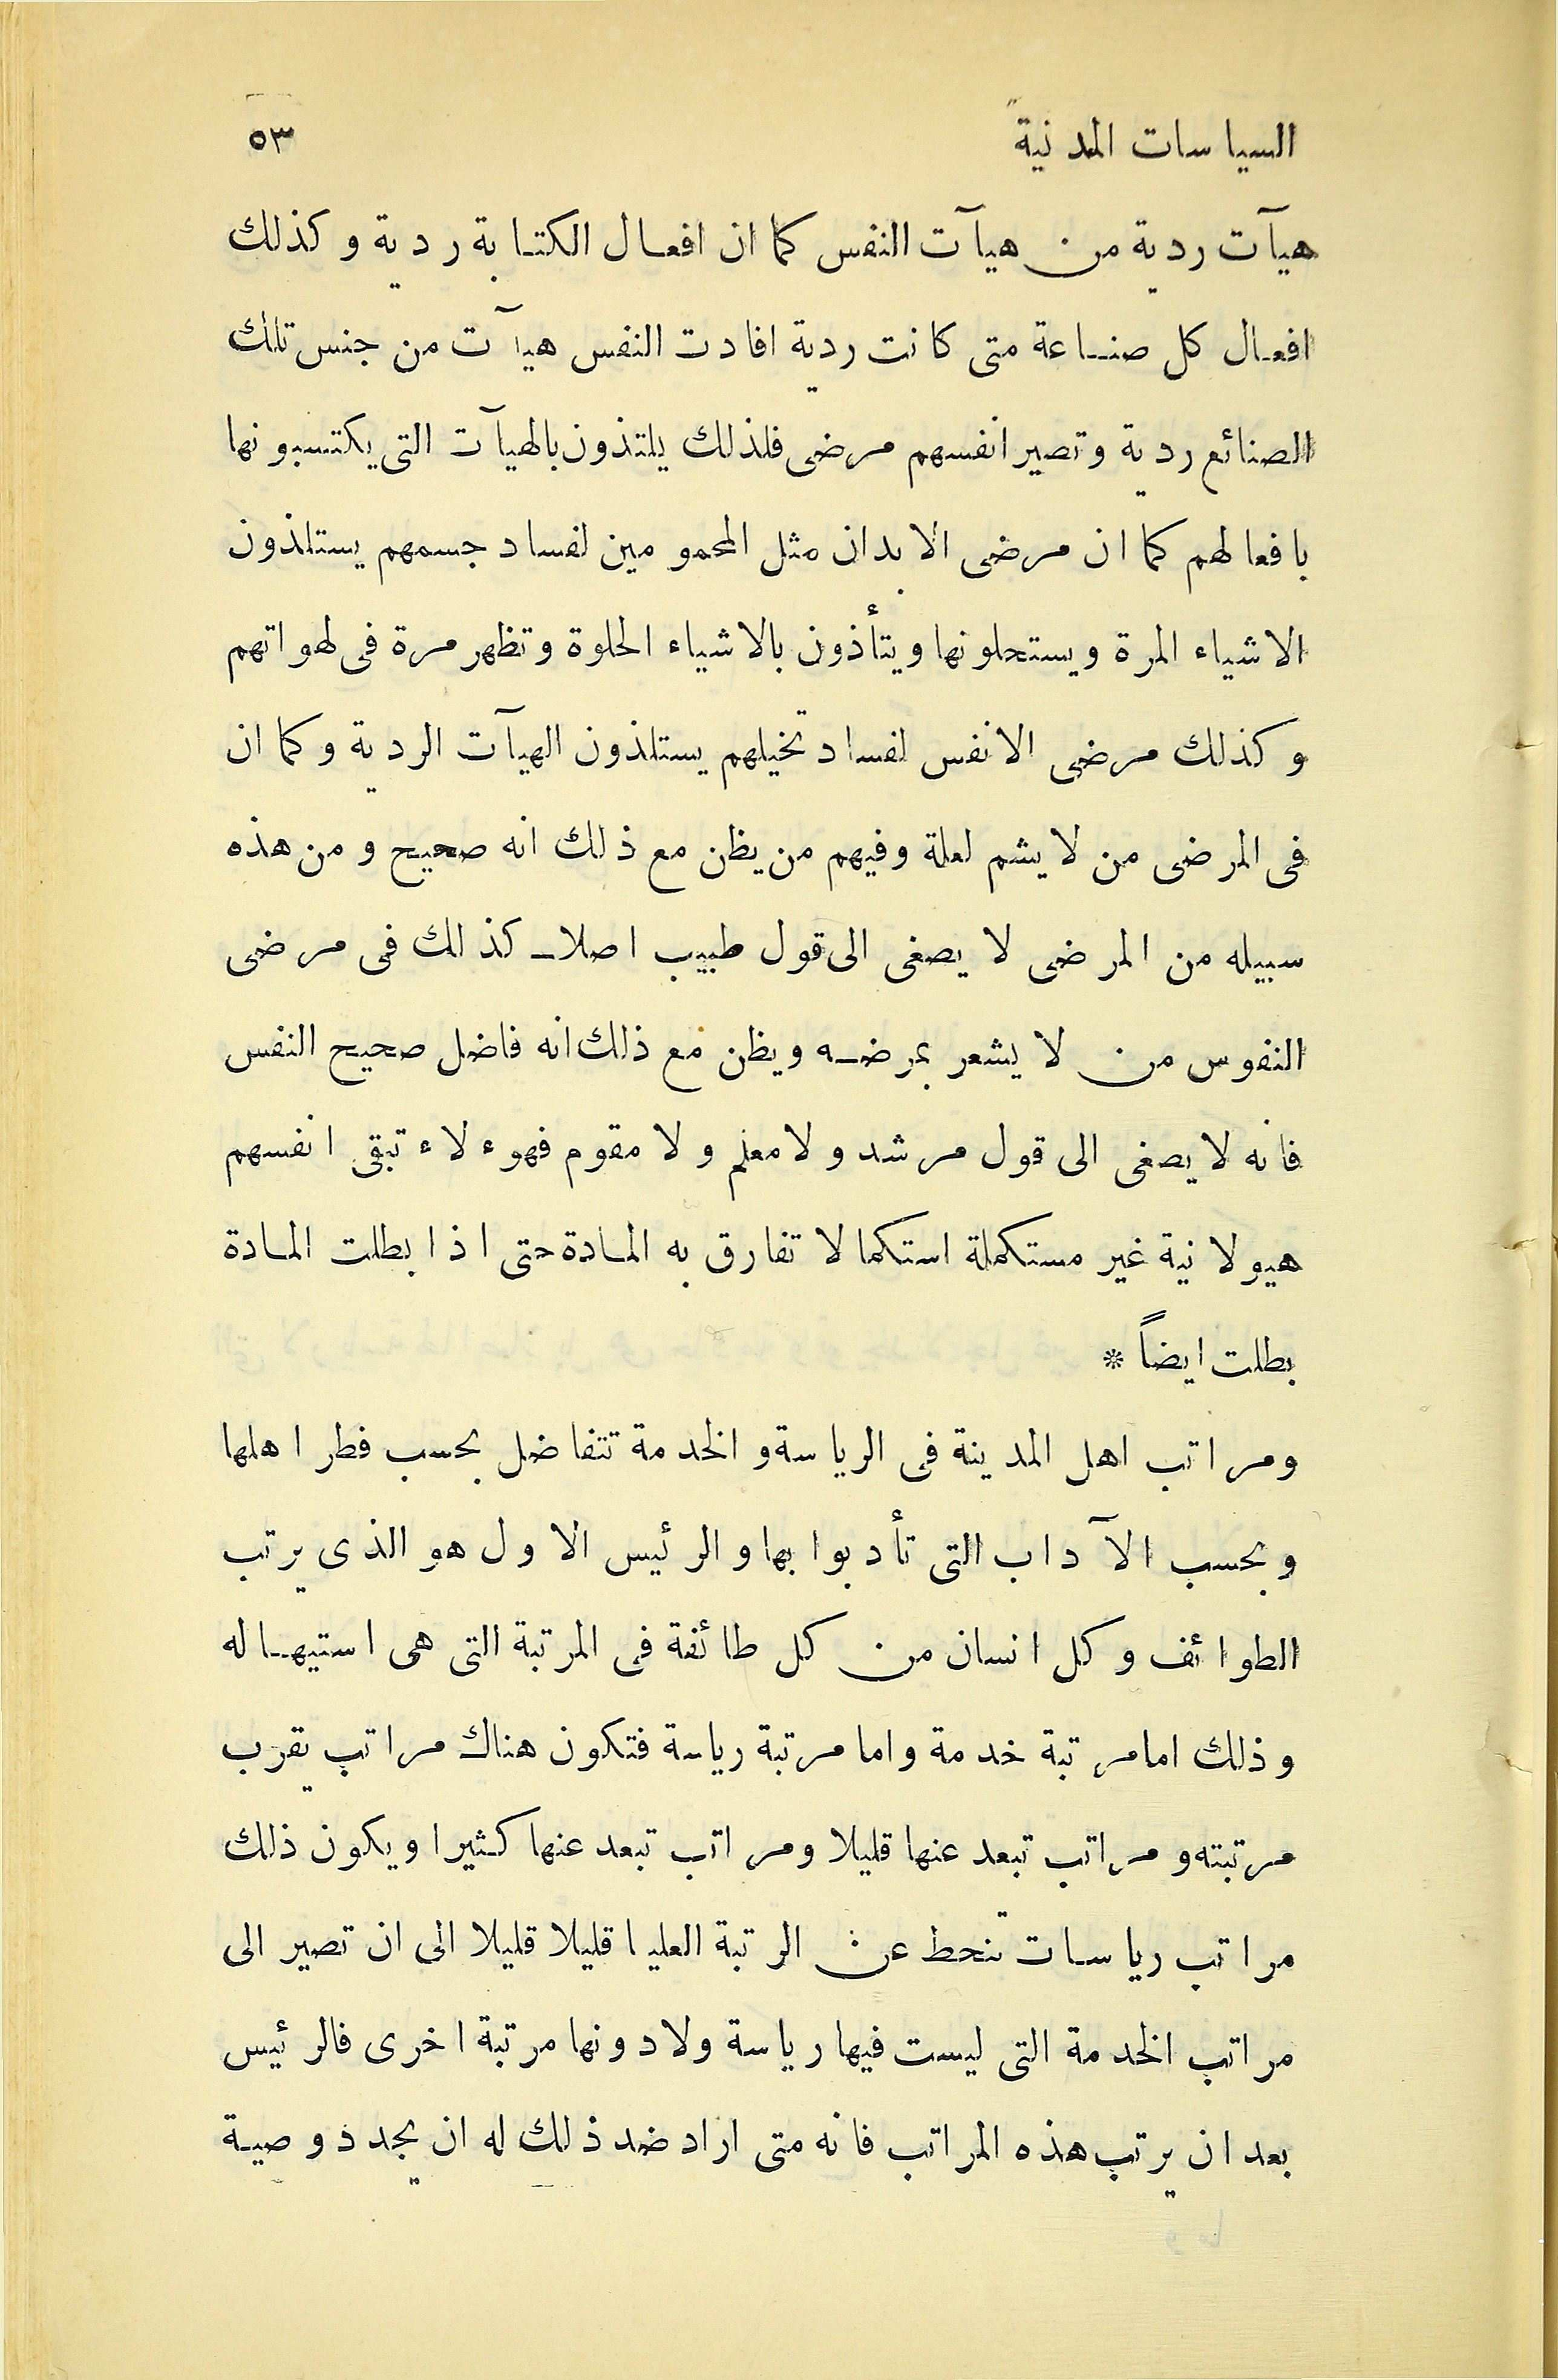 السياسات المدنية ٥٣
هيآت ردية من هيآت النفس كما ان افعال الكتابة ردية وكذلك
افعال كل صناعة متى كانت ردية افادت النفس هيآت من جنس تلك
الصنائع ردية وتصير انفسهم مرضى فلذلك يلتذون بالهيآت التى يكتسبونها
بافعالهم كما ان مرضى الابدان مثل المحمومين لفساد جسمهم يستلذون
الاشياء المرة ويستحلونها ويتأذون بالاشياء الحلوة وتظهر مرة فى لهواتهم
وكذلك مرضى الانفس لفساد تخيلهم يستلذون الهيآت الردية وكما ان
فى المرضى من لا يشم لعلة وفيهم من يظن مع ذلك انه صحيح ومن هذه
سبيله من المرضى لا يصغى الى قول طبيب اصلا كذلك فى مرضى
النفوس من لا يشعر بمرضه ويظن مع ذلك انه فاضل صحيح النفس
فانه لا يصغى الى قول مرشد ولا معلم ولا مقوم فهوءلاء تبقى انفسهم
هيولانية غير مستكملة استكمالا تفارق به المادة حتى اذا بطلت المادة
بطلت ايضاً *
ومراتب اهل المدينة فى الرياسة والخدمة تتفاضل بحسب فطر اهلها
وبحسب الآداب التى تأدبوا بها والرئيس الاول هو الذى يرتب
الطوائف وكل انسان من كل طائفة فى المرتبة التى هى استيهاله
وذلك اما مرتبة خدمة واما مرتبة رياسة فتكون هناك مراتب يقرب
مرتبته ومراتب تبعد عنها قليلا ومراتب تبعد عنها كثيرا ويكون ذلك
مراتب رياسات تنحط عن الرتبة العليا قليلا قليلا الى ان تصير الى
مراتب الخدمة التى ليست فيها رياسة ولا دونها مرتبة اخرى فالرئيس
بعد ان يرتب هذه المراتب فانه متى اراد ضد ذلك له ان يجدد وصية